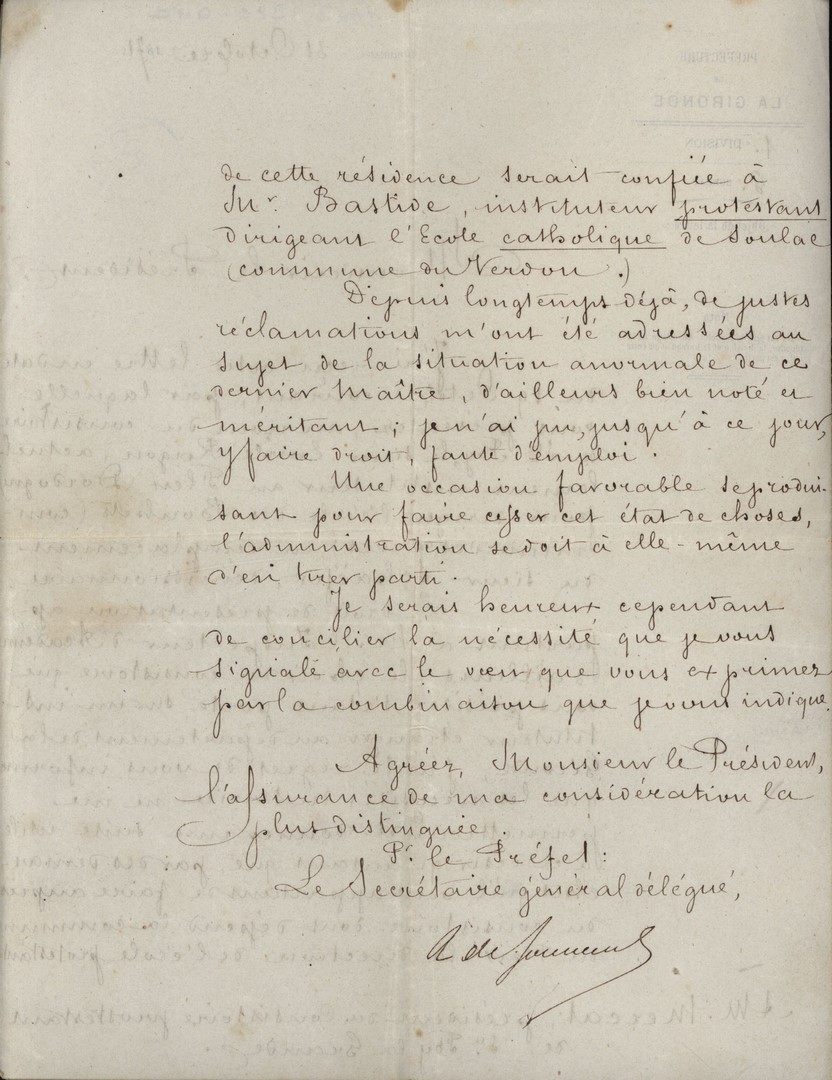 de cette résidence serait confiée à
Mr. Bastide, instituteur protestant
dirigeant l'Ecole catholique de Soulac
(commune du Verdon.)
Depuis longtemps déjà, de justes
réclamations m'ont été adressées au
sujet de la situation anormale de ce
dernier maître, d'ailleurs bien noté et
méritant; je n'ai pu, jusqu'à ce jour,
y faire droit, faute d'emploi.
Une occasion favorable se produi-
sant pour faire cesser cet état de choses,
l'administration se doit à elle-même
d'en tirer parti.
Je serais heureux cependant
de concilier la nécessité que je vous
signale avec le voeu que vous exprimez
par la combinaison que je vous indique.
Agréez, Monsieur le Président,
l'assurance de ma considération la
plus distinguée.
Pr. le Préfet:
Le Secrétaire général délégué,
A de